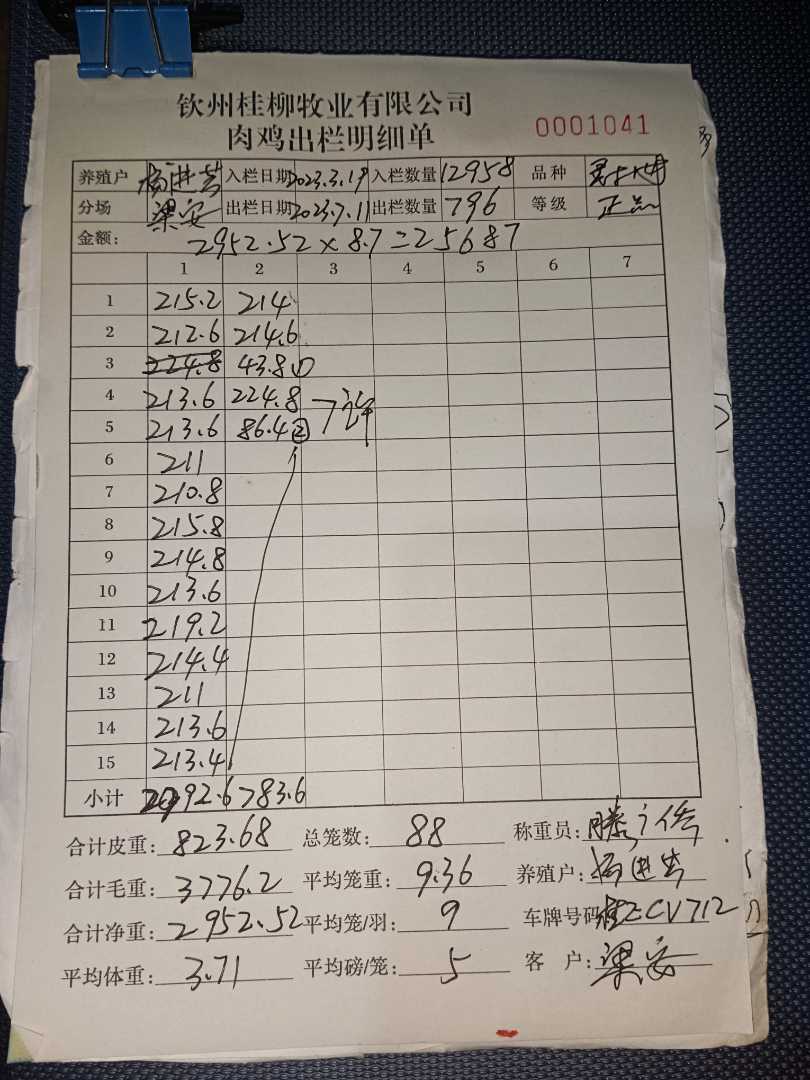 钦州桂柳牧业有限公司
肉鸡出栏明细单
0001041
养殖户 杨进芸 入栏日期 2023.3.19 入栏数量 12958 品种
分场 梁安 出栏日期 2023.7.11 出栏数量 796 等级 正品
金额: 2952.52×8.7=25687
1 2 3 4 5 6 7
1 215.2 214
2 212.6 214.6
3 224.8 43.8①
4 213.6 224.8
5 213.6 86.4② 7
6 211
7 210.8
8 215.8
9 214.8
10 213.6
11 219.2
12 214.4
13 211
14 213.6
15 213.4
小计 2992.6 783.6
合计皮重: 823.68 总笼数: 88 称重员: 滕
合计毛重: 3776.2 平均笼重: 9.36 养殖户: 杨进芸
合计净重: 2952.52 平均笼/羽: 9 车牌号码: CV712
平均体重: 3.71 平均磅/笼: 5 客户: 梁安